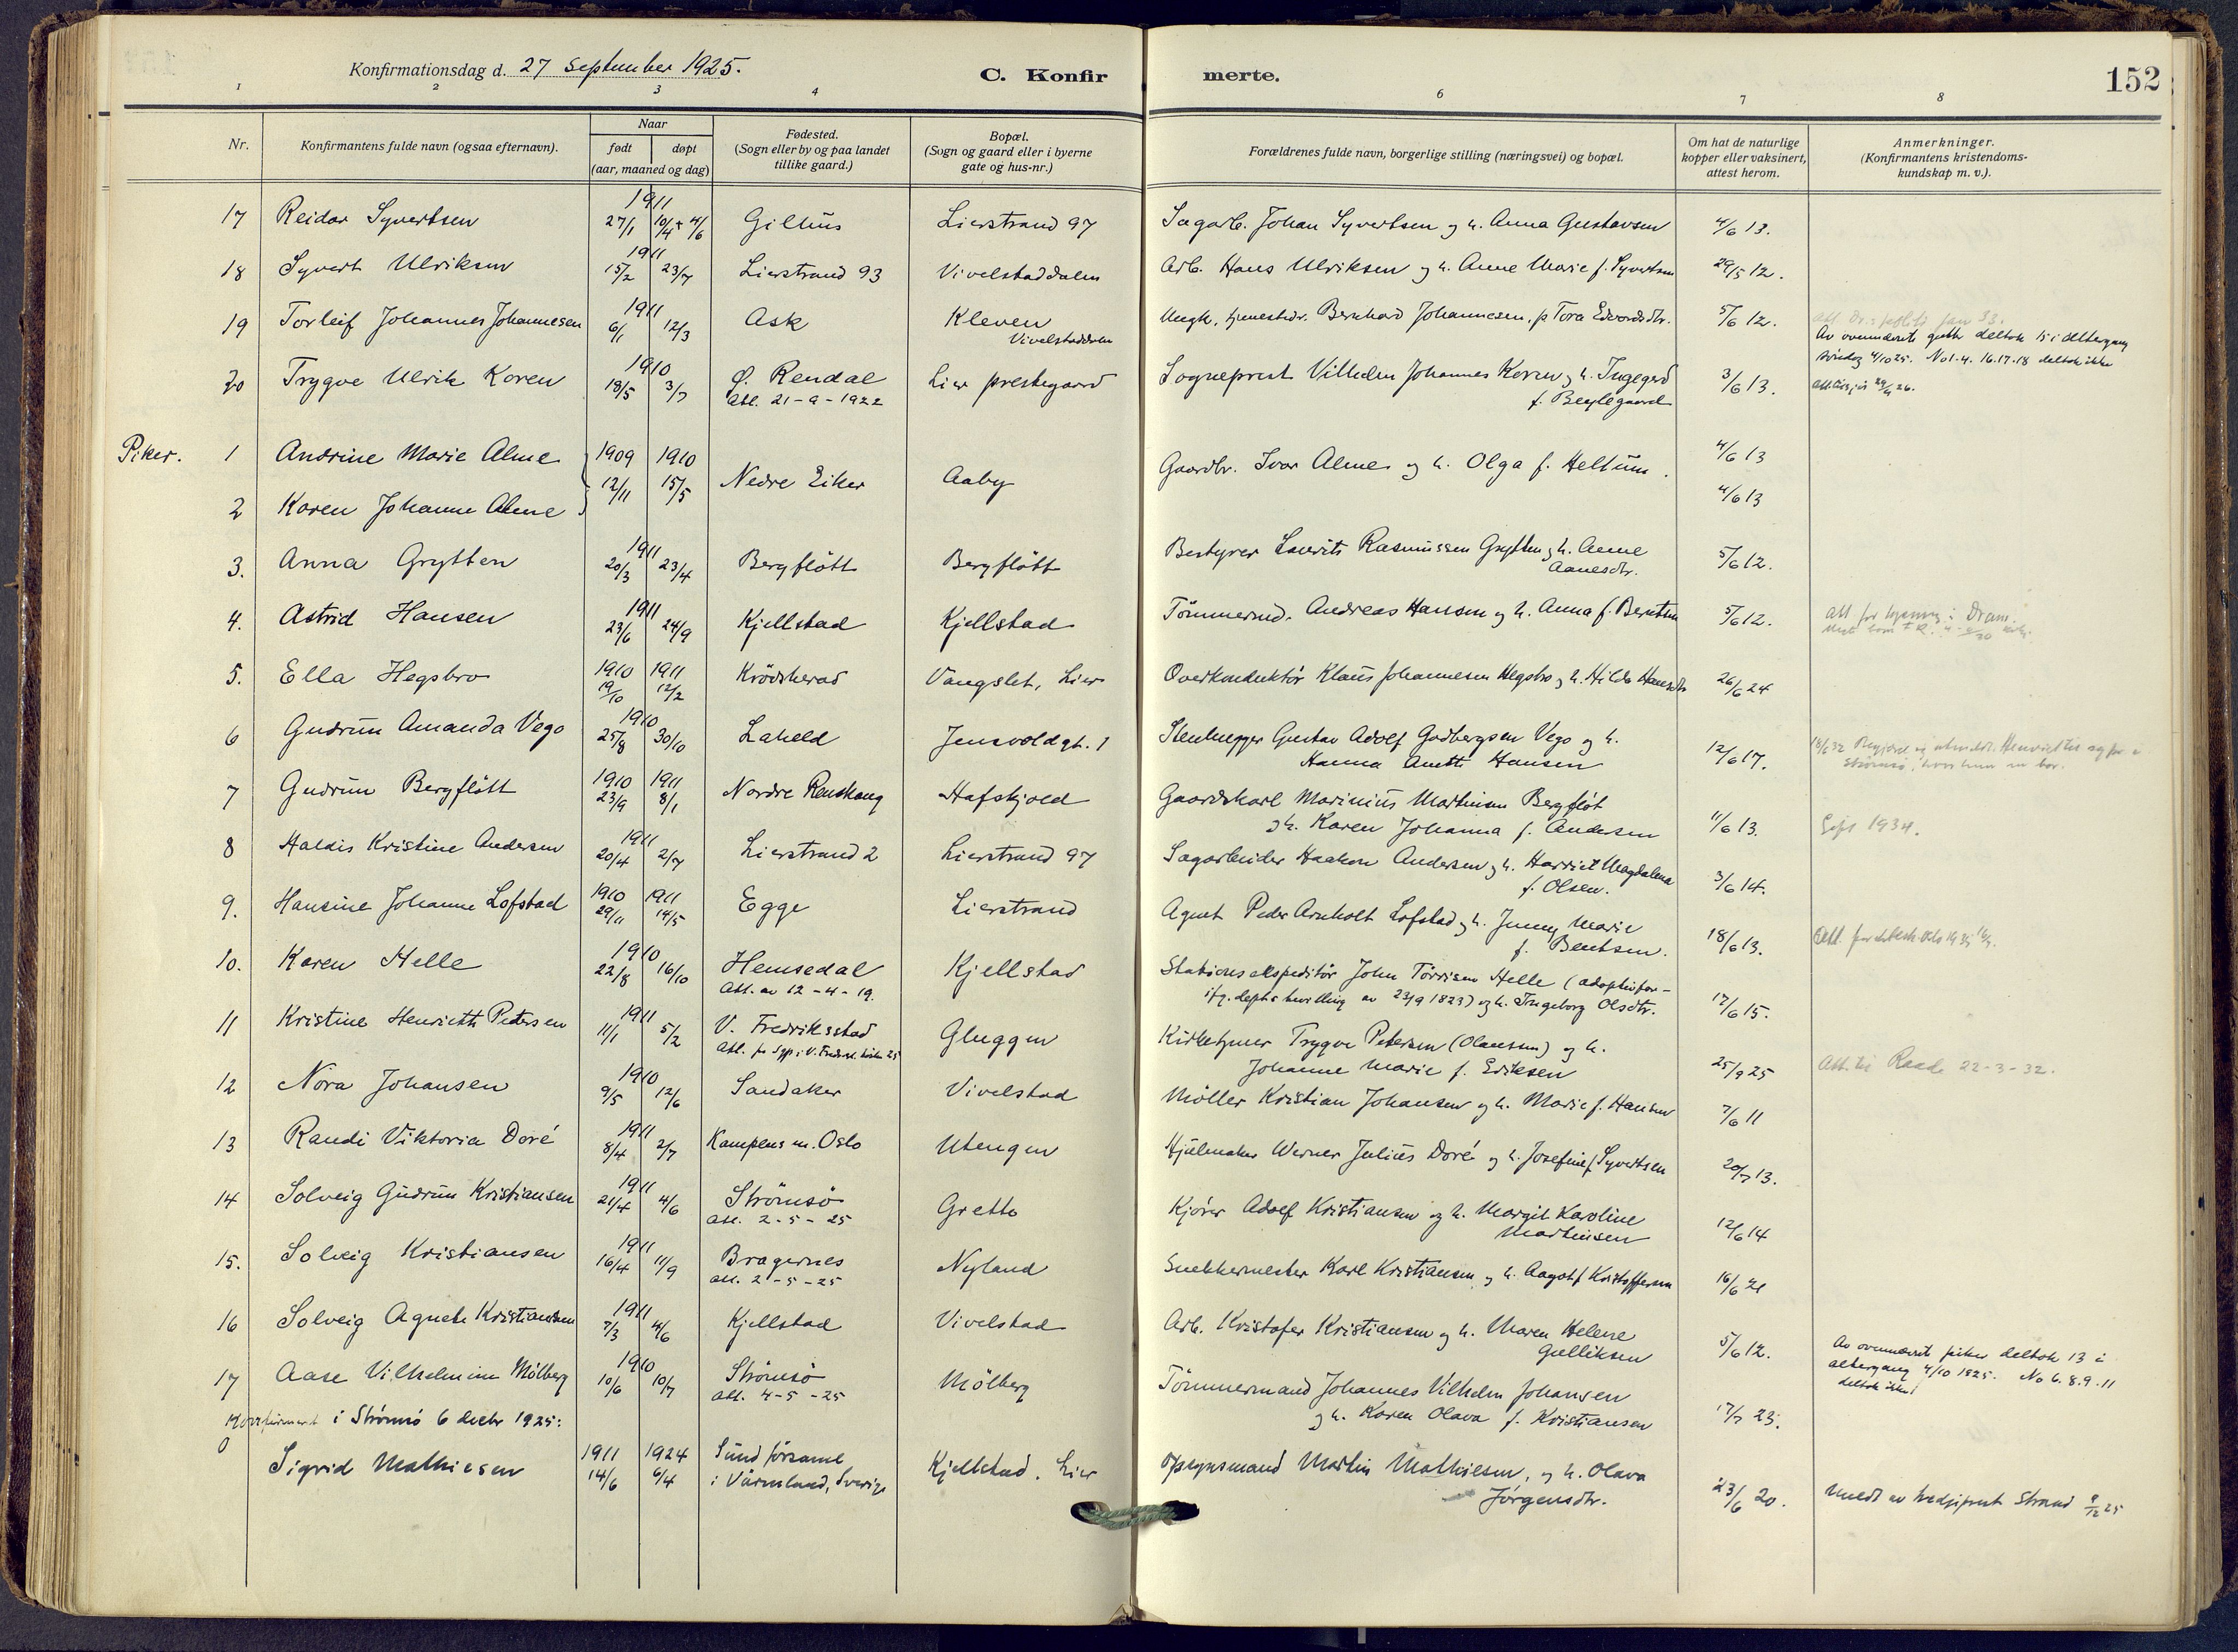 Konfirmationsdag d. 27 September 1925.
C. Konfirmerte.
152
1 2 3 4 6 7 8
Nr.
Konfirmantens fulde navn (ogsaa efternavn).
Naar
født døpt
(aar, maaned og dag)
Fødested.
(Sogn eller by og paa landet
tillike gaard.)
Bopæl.
(Sogn og gaard eller i byerne
gate og hus-nr.)
Forældrenes fulde navn, borgerlige stilling (næringsvei) og bopæl.
Om hat de naturlige
kopper eller vaksinert,
attest herom.
Anmerkninger.
(Konfirmantens kristendoms-
kundskap m. v.).
17 Reidar Syvertsen 1911 27/1 10/4 + 4/6 Gilhus Lierstrand 97 Sagarb. Johan Syvertsen og h. Anna Gustavsen 4/6 13.
18 Syvert Ulriksen 1911 15/2 23/7 Lierstrand 93 Vivelstaddalen Arb. Hans Ulriksen og h. Anne Marie f. Syvertsen 29/5 12.
19 Torleif Johannes Johannesen 1911 6/1 12/3 Ask Kleven
Vivelstaddalen
Ungk. tjenestedr. Bernhard Johannesen, p Tora Edvardsdtr. 5/6 12.
Av ovennævnte gutter deltok 15 i altergang
søndag 4/10 25. No 1.4.16.17.18 deltok ikke
20 Trygve Ulrik Koren 1910 18/5 3/7 Ø. Rendal
att. 21-9-1922
Lier prestegaard Sogneprest Vilhelm Johannes Koren og h. Ingegerd
f. Beylegaard
3/6 13.
Piker. 1 Andrine Marie Alme 1909 1910 4/6 13
12/11 15/5 Nedre Eiker Aaby Gaardbr. Ivar Alme og h. Olga f. Hellum.
2 Karen Johanne Alme 4/6 13
3. Anna Grytten 1911 20/3 23/4 Bergfløtt Bergfløtt Bestyrer Lauritz Rasmussen Grytten og h. Anne
Aanesdtr.
5/6 12.
4. Astrid Hansen 1911 23/6 24/9 Kjellstad Kjellstad Tømmermd. Andreas Hansen og h. Anna f. Berntsen 5/6 12.
5. Ella Hegsbro 1910 19/10 1911 12/2 Krødsherad Vangslet, Lier Overkonduktør Klaus Johannesen Hegsbro og h. Hilda Hansdtr 26/6 24
6 Gudrun Amanda Vego 1910 25/8 30/10 Laheld Jensvoldgt. 1 Stenhugger Gustav Adolf Godbergsen Vego og h.
Hanna Anette Hansen
12/6 17.
7 Gudrun Bergfløtt 1910 23/9 1911 8/1 Nordre Renskaug Hafskjold Gaardskarl Marinius Martinsen Bergfløt
og h. Karen Johanna f. Andersen
11/6 13. Gift 1934.
8 Haldis Kristine Andersen 1911 20/4 2/7 Lierstrand 2 Lierstrand 97 Sagarbeider Haakon Andersen og h. Harriet Magdalena
f. Olsen.
3/6 14.
9. Hansine Johanne Lofstad 1910 29/11 1911 14/5 Egge Lierstrand Agent Peder Arnholt Lofstad og h. Jenny Marie
f. Bentsen.
18/6 13.
10. Karen Helle 1910 22/8 16/10 Hemsedal
Att. av 12-4-19.
Kjellstad Stationsekspeditør John Tørrisen Helle (adoptivfor-
ifg. depts bevilling av 23/9 1823) og h. Ingeborg Olsdtr.
17/6 15.
11 Kristine Henriette Petersen 1911 11/1 5/2 V. Fredriksstad
Gluggen Kirketjener Trygve Petersen (Olaussen) og h.
Johanne Marie f. Eriksen
25/9 25 Att. til Raade 22-3-32.
12 Nora Johansen 1910 9/5 12/6 Sandaker Vivelstad Møller Kristian Johansen og h. Marie f. Hansen 7/6 11
13 Randi Viktoria Doré 1911 8/4 2/7 Kampens m. Oslo Utengen Hjulmaker Werner Julius Doré og h. Josefine f. Syvertsen 20/7 13.
14 Solveig Gudrun Kristiansen 1911 21/4 4/6 Strømsø
att. 2-5-25
Gretto Kjører Adolf Kristiansen og h. Margit Karoline
Martinsen
12/6 14
15. Solveig Kristiansen 1911 16/4 11/9 Bragernes
att. 2-5-25
Nyland Snekkermester Karl Kristiansen og h. Aagot f Kristoffersen 16/6 21
16 Solveig Agnete Kristiansen 1911 7/3 4/6 Kjellstad Vivelstad Arb. Kristofer Kristiansen og h. Maren Helene
Gulliksen
5/6 12.
Av ovennævnte piker deltok 13 i
altergang 4/10 1825. No 6.8.9.11
deltok ikke
17 Aase Vilhelmine Mölberg 1910 10/6 10/7 Strømsø
att. 4-5-25
Mölberg Tømmermand Johannes Vilhelm Johansen
og h. Karen Olava f. Kristiansen
17/7 23.
Konfirmert i Strømsø 6 decbr 1925:
0 Sigrid Mathiesen 1911 14/6 1924 6/4 Sund forsaml
i Värmland, Sverige
Kjellstad. Lier Opsynsmand Martin Mathiesen, og h. Olava
Jørgensdtr.
23/6 20. meldt av tredjeprest Strand 9/12 25